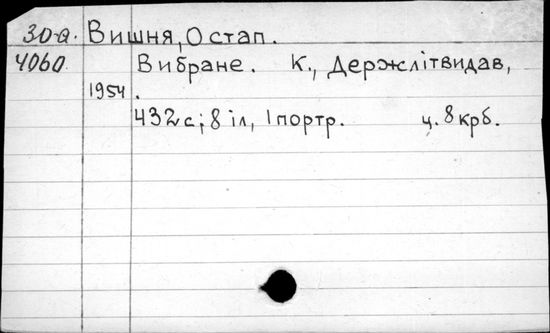 30-а. Вишня, Остап.
4060. Вибране. К., Держлітвидав,
1954.
432 с; 8 іл, 1 портр. ц. 8 крб.